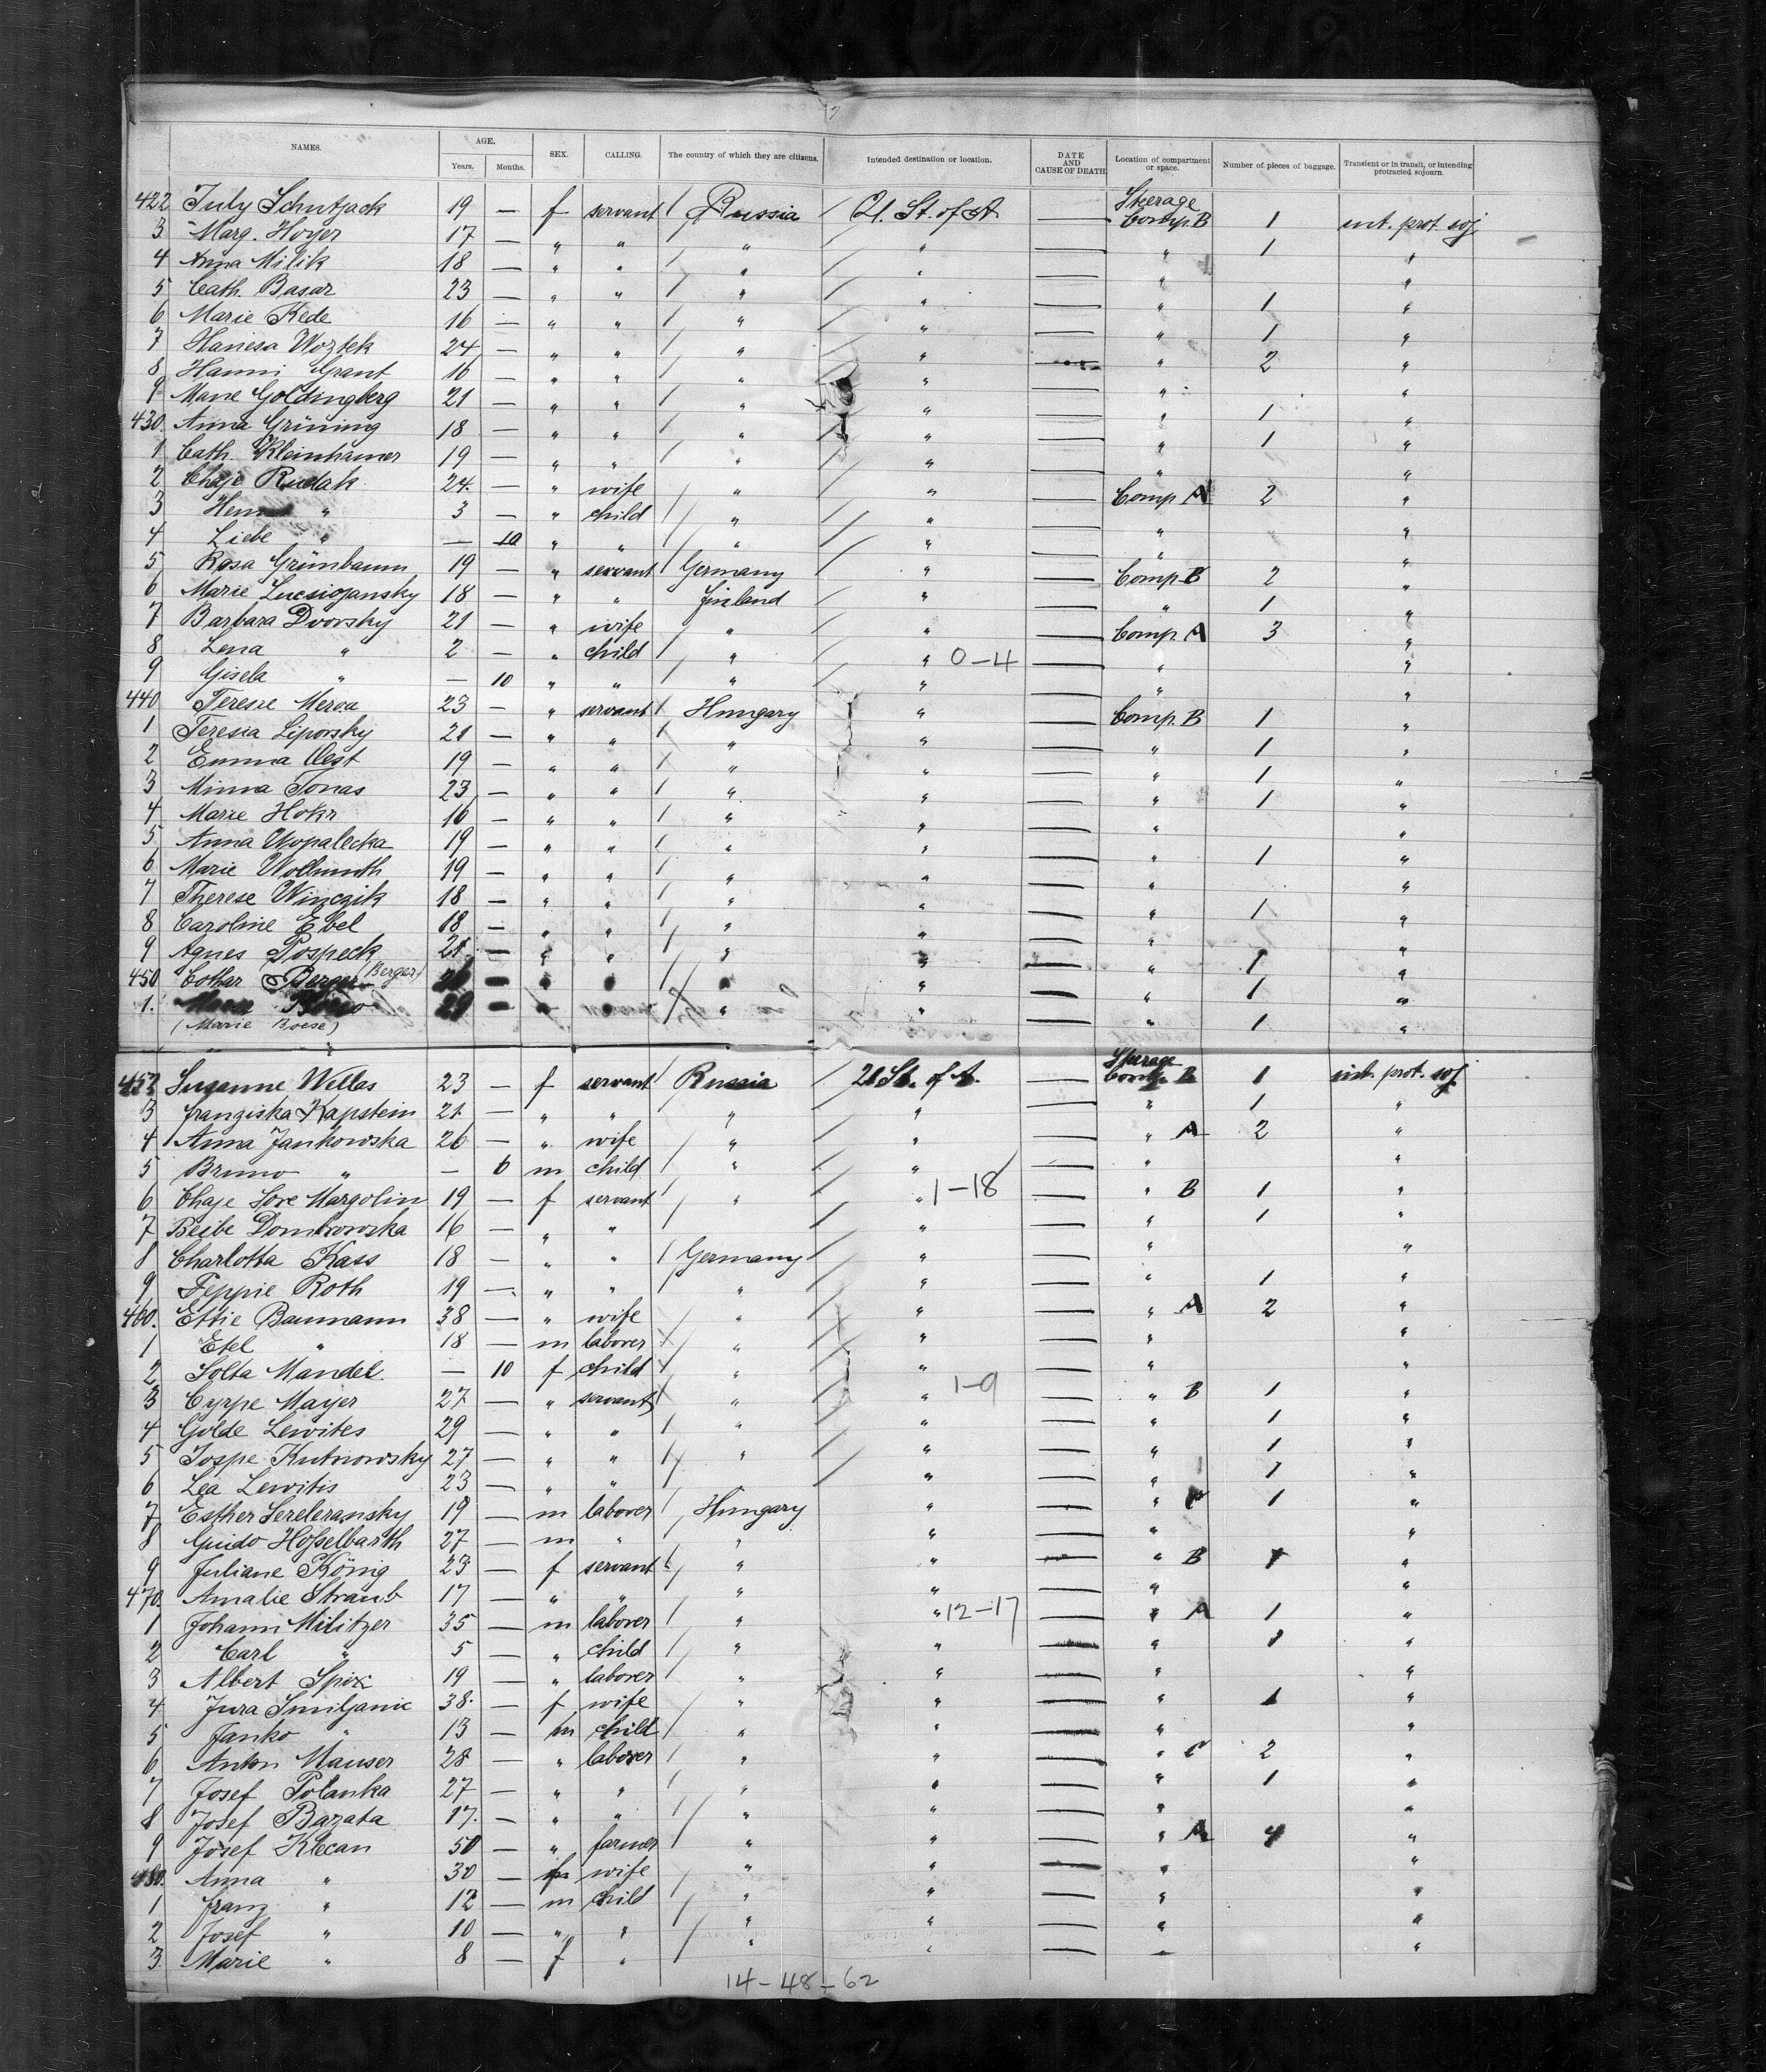 NAMES. AGE. SEX. CALLING. The country of which they are citizens. Intended destination or location. DATE AND CAUSE OF DEATH. Location of compartment or space. Number of pieces of baggage. Transient or in transit, or intending protracted sojourn.
Years. Months.
422 July Schutjack 19 — f servant Russia U. St. of A — Steerage Comp. B 1 int. prot. soj
3 Marg. Hoyer 17 — " " " " — 1 "
4 Anna Milik 18 — " " " " — " "
5 Cath. Basar 23 — " " " " — " 1 "
6 Marie Kede 16 — " " " " — " 1 "
7 Haniesa Woztek 24 — " " " " — " 2 "
8 Hanni Grant 16 — " " " " — " "
9 Marie Goldingberg 21 — " " " " — " 1 "
430. Anna Grüning 18 — " " " " — " 1 "
1 Cath. Kleinhamer 19 — " " " " — " "
2 Chaje Rudak 24. — " wife " " — Comp. A 2 "
3 " 3 — " child " " — " "
4 Liebe " — 10 " " " " — " "
5 Rosa Grünbaum 19 — " servant Germany " — Comp B 2 "
6 Marie Lucsiojansky 18 — " " Finland " — " 1 "
7 Barbara Dvorsky 21 — " wife " " — Comp. A 3 "
8 Lena " 2 — " child " " 0-4 — " "
9 Gisela " — 10 " " " " — " "
440 Terese Merva 23 — " servant Hungary " — Comp. B 1 "
1 Teresia Liporsky 21 — " " " " — " 1 "
2 Emma Oest 19 — " " " " — " 1 "
3 Minna Jonas 23 — " " " " — " 1 "
4 Marie Hokr 16 — " " " " — " "
5 Anna Wopalecka 19 — " " " " — " 1 "
6 Marie Wollmuth 19 — " " " " — " "
7 Therese Winczik 18 — " " " " — " 1 "
8 Caroline Ebel 18 — " " " " — " "
9 Agnes Pospeck 21. — " " " " — " 1 "
450 Cothar Berger (Berger) — " " " " — " 1 "
1. 29 — " " " — " 1 "
(Marie Boese)
452 Susanne Wellas 23 — f servant Russia U St. of A. — Steerage Comp. B 1 int. prot. soj
3 Franziska Kapstein 21 — " " " " — " 1 "
4 Anna Jankowska 26 — " wife " " — " A 2 "
5 Bruno " — 6 m child " " — " "
6 Chaje Sore Margolin 19 — f servant " " 1-18 — " B 1 "
7 Beibe Dombrowska 16 — " " " — " 1 "
8 Charlotta Kass 18 — " " Germany " — " "
9 Peppie Roth 19 — " " " " — " 1 "
460. Ettie Baumann 38 — " wife " " — " A 2 "
1 Etel " 18 — m laborer " " — " "
2 Solta Mandel. — 10 f child " " — " "
3 Cyppe Mayer 27 — " servant " " 1-9 — " B 1 "
4 Golde Lewites 29 — " " " " — " 1 "
5 Jospe Kutnowsky 27 — " " " " — " 1 "
6 Lea Lewitis 23 — " " " — " 1 "
7 Esther Sereleransky 19 — m laborer Hungary " — " 1 "
8 Guido Hosselbarth 27 — m " " " — " "
9 Juliane König 23 — f servant " " — " B 1 "
470. Amalie Straub 17 — " " " " — " "
1 Johann Militzer 35 — m laborer " " 12-17 — " A 1 "
2 Carl " 5 — " child " " — " 1 "
3 Albert Spix 19 — " laborer " " — " "
4 Jura Smiljanic 38. — f wife " " — " 1 "
5 Janko " 13 — m child " " — " "
6 Anton Mauser 28 — " laborer " " — " C 2 "
7 Josef Polanka 27 — " " " " — " 1 "
8 Josef Bazata 17. — " " " " — " "
9 Josef Klecan 50 — " farmer " " — " A 4 "
480. Anna " 30 — wife " " — " "
1 Franz " 12 — m child " " — " "
2 Josef " 10 — " " " " — " "
3. Marie " 8 — f " " " — " "
14-48-62